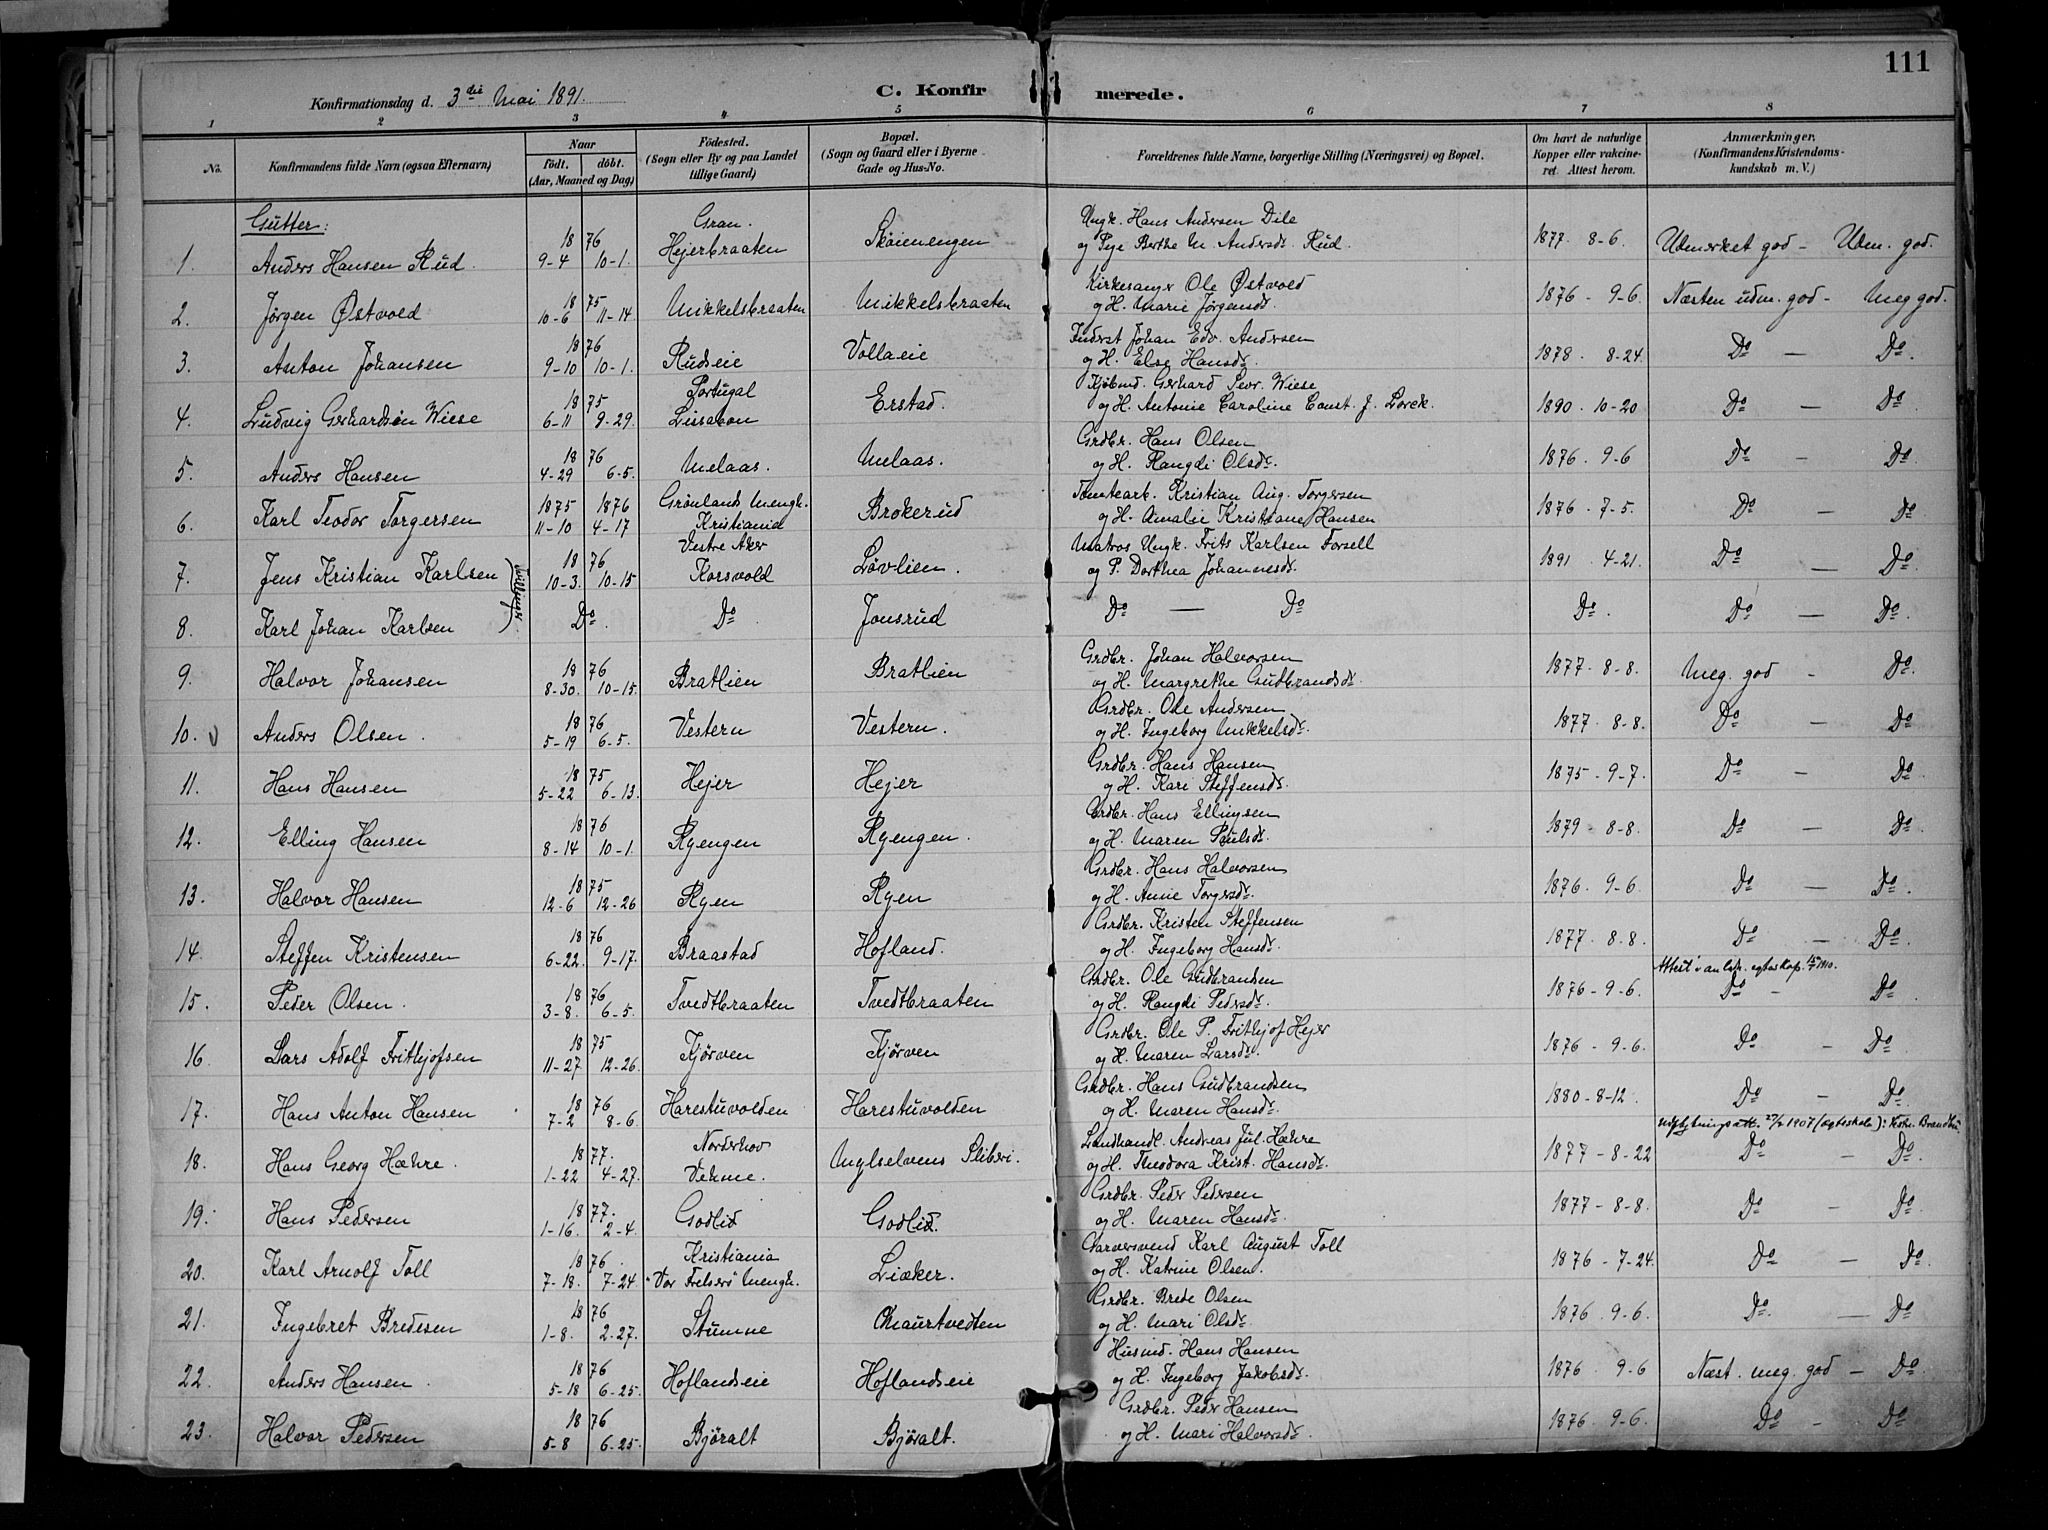 111
Konfirmationsdag d. 3die Mai 1891. C. Konfirmerede.
1 2 3 4 5 6 7 8
No. Konfirmandens fulde Navn (ogsaa Efternavn) Naar födt. döbt. (Aar, Maaned og Dag) Födested. (Sogn eller By og paa Landet tillige Gaard) Bopæl. (Sogn og Gaard eller i Byerne Gade og Hus-No. Forældrenes fulde Navne, borgerlige Stilling (Næringsvei) og Bopæl. Om havt de naturlige Kopper eller vakcineret. Attest herom. Anmærkninger. (Konfirmandens Kristendomskundskab m. V.)
Gutter:
1. Anders Hansen Rud. 1876 9-4 10-1. Gran. Hejerbraaten Skøienengen Ungk. Hans Andersen Dile og Pige Berthe M. Andersdr. Rud. 1877. 8-6. Udmerket god - Udm. god.
2. Jørgen Østvold 1875 10-6 11-14 Mikkelsbraaten Mikkelsbraaten Kirkesangr Ole Østvold og H. Marie Jørgensdr. 1876 - 9-6. Næsten udm. god - Meg god.
3. Anton Johansen 1876 9-10 10-1. Rudseie Vollaeie Inderst Johan Edv. Andersen og H. Else Hansdr. 1878. 8-24. Do - Do.
4. Ludvig Gerhardsøn Wiese 1875 6-11 9-29. Portugal Lissabon Erstad. Kjøbmd. Gerhard Sevr. Wiese og H. Antonie Caroline Const. J. Lorck. 1890. 10-20 Do - Do.
5. Anders Hansen 1876 4-29 6-5. Melaas. Melaas. Grdbr. Hans Olsen og H. Rangdi Olsdr. 1876. 9-6 Do - Do
6. Karl Teodor Torgersen 1875 11-10 1876 4-17 Grønlands Mengh. Kristiania Brokerud Tomtearb. Kristian Aug. Torgersen og H. Amalie Kristiane Hansen 1876. 7-5. Do - Do
7. Jens Kristian Karlsen 1876 10-3. 10-15 Vestre Aker Korsvold Løvlien. Matros Ungk. Frits Karlsen Forsell og P. Dorthea Johannesdr. 1891. 4-21. Do - Do.
Tvillinger
8. Karl Johan Karlsen Do. Do. Jonsrud Do - Do Do. Do - Do.
9. Halvor Johansen 1876 8-30. 10-15. Bratlien Bratlien Grdbr. Johan Halvorsen og H. Margrethe Gudbrandsdr 1877. 8-8. Meg. god - Do.
10. Anders Olsen. 1876 5-19 6-5. Vestern Vestern. Grdbr. Ole Andersen og H. Ingeborg Mikkelsdr. 1877. 8-8. Do - Do
11. Hans Hansen 1875 5-22 6-13. Hejer Hejer Grdbr. Hans Hansen og H. Kari Steffensdr. 1875. 9-7. Do - Do
12. Elling Hansen 1876 8-14 10-1. Ryengen Ryengen. Grdbr. Hans Ellingsen og H. Maren Poulsdr. 1879. 8-8. Do - Do
13. Halvor Hansen 1875 12-6 12-26 Ryen Ryen Grdbr. Hans Halvorsen og H. Anne Torgersdr. 1876. 9-6. Do - Do.
14. Steffen Kristensen 1876 6-22. 9-17. Braastad Hofland. Grdbr. Kristen Steffensen og H. Ingeborg Hansdr. 1877. 8-8. Do - Do.
15. Peder Olsen. 1876 3-8. 6-5. Tvedtbraaten Tvedtbraaten Grdbr. Ole Gudbrandsen og H. Rangdi Pedersdr. 1876 - 9-6. Do - Do.
16 Lars Adolf Frithjofsen 1875 11-27 12-26. Kjørven Kjørven Grdbr. Ole P. Frithjof Hejer og H. Maren Larsdr. 1876 - 9-6. Do - Do.
17. Hans Anton Hansen 1876 7-2 8-6. Harestuvolden Harestuvolden Grdbr. Hans Gudbrandsen og H. Maren Hansdr. 1880 - 8-12. Do - Do.
18. Hans Georg Hæhre. 1877. 1-22 4-27. Norderhov Vehme. Mylselvens Sliberi. Landhandl. Andreas Jul. Hæhre og H. Theodora Krist. Hansdr. 1877 - 8-22 Do - Do.
19. Hans Pedersen 1877. 1-16. 2-4. Godlid Godlid. Grdbr. Peder Pedersen og H. Maren Hansdr. 1877 - 8-8. Do - Do.
20. Karl Arnolf Toll 1876. 7-18. 7-24. Kristiania "Vor Frelsers" Mengh. Liøker. Garversvend Karl August Toll og H. Katrine Olsen. 1876 - 7-24. Do - Do.
21. Ingebret Bredesen 1876 1-8. 2-27. Stumne Maurtvedten Grdbr. Brede Olsen og H. Mari Olsdr. 1876. 9-6. Do. - Do.
22. Anders Hansen. 1876 5-18 6-25. Hoflandseie Hoflandseie Husmd. Hans Hansen og H. Ingeborg Jakobsdr. 1876. 9-6 Næst. meg. god - Do.
23. Halvor Pedersen 1876 5-8 6-25. Bjøralt Bjøralt. Grdbr. Peder Hansen og H. Mari Halvorsdr. 1876. 9-6. Do - Do